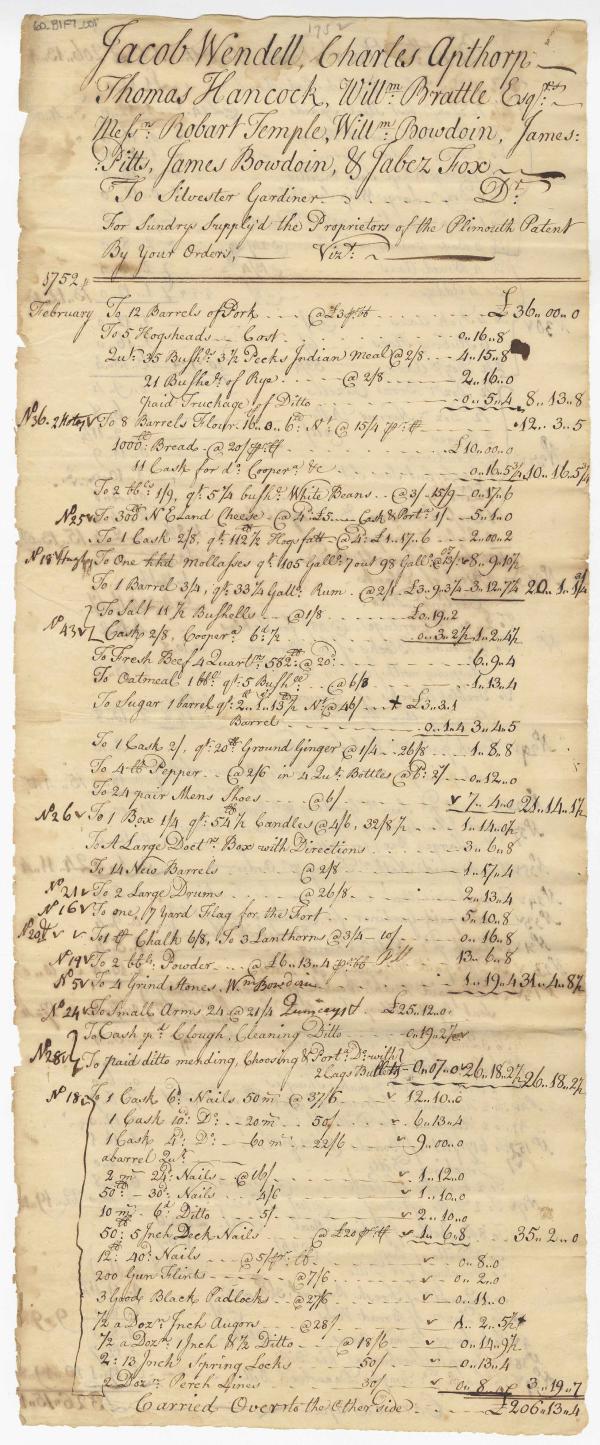 1752
Jacob Wendell, Charles Apthorp
Thomas Hancock, Will.m Brattle Esq.rs
Mess.rs Robart Temple, Will.m Bowdoin, James:
:Pitts, James Bowdoin, & Jabez Fox
To Silvester Gardiner D.r
For Sundrys Supply'd the Proprietors of the Plimouth Patent
By Your Orders, Viz.t
1752
February To 12 Barrels of Pork @ £3 pr bb £36..00..0
To 5 Hogsheads Cost 0..16..8
Qu.t 35 Bush.s 3½ Pecks Indian Meal @ 2/8 4..15..8
21 Bush.s of Rye @ 2/8 2..16..0
paid Truchage of Ditto 0..5..4 8..13..8
N.o 36. To 8 Barrels Flour 16..0..6 N.t @ 15/4 12..3..5
1000 Bread @ 20/ £10..00..0
11 Cask for d.o Cooper.g &c 0..16..5¾ 10..16..5¾
To 2 bb.ls 1/9, q.t 5¼ bush.s White Beans @ 3/ 15/9 0..17..6
N.o 25 To 300 N Eland Cheese @ 4.d £5 Cask & Port.g 1/ 5..1..0
To 1 Cask 2/8, q.t 112½ Hogsfatt @ 4.d £1..17..6 2..00..2
N.o 18 To One hhd Mollasses q.t 105 Gall.s 7 out 98 Gall.s 8..9..10½
To 1 Barrel 3/4, q.t 33¼ Gall.s Rum @ 2/1 £3..9..3¼ 3..12..7¼ 20..1..
N.o 43 To Salt 11½ Bushells @ 1/8 £0..19..2
Cask 2/8, Cooper.g 6½ 0..3..2½ 1..2..4½
To Fresh Beef 4 Quart.rs 582 @ 6..9..4
To Oatmeal 1 bb.l q.t 5 Bush.s @ 6/8 1..13..4
To Sugar 1 barrel q.t 2..1..13½ N.t @ 46/ £3..3..1
Barrel 0..1..4 3..4..5
To 1 Cask 2/, q.t 20 Ground Ginger @ 1/4 26/8 1..8..8
To 4 Pepper @ 2/6 in 4 Qu.t Bottles @ 6.d 2/ 0..12..0
To 24 pair Mens Shoes @ 6/ 7..4..0 21..14..1½
N.o 26 To 1 Box 1/4 q.t Candles @ 4/6, 32/8½ 1..14..0½
To A Large Doct.rs Box with Directions 3..6..8
To 14 New Barrels @ 2/8 1..17..4
N.o 21 To 2 Large Drums @ 26/8 2..13..4
N.o 16 To one, 17 Yard Flag for the Fort 5..10..8
To 1 Chalk 6/8, To 3 Lanthorns @ 3/4 10/ 0..16..8
N.o 19 To 2 bb.ls Powder @ £6..13..4 pr bb 13..6..8
N.o 5 To 4 Grind Stones, W.m Bowdoin 1..19..4 31..4..8½
N.o 24 To Small Arms 24 @ 21/4 Quincyst £25..12..0
To Cash p.d Clough, Cleaning Ditto 0..19..2½
N.o 28 To paid ditto mending, Choosing & Port.g D.o with
2 Cags Bulletts 0..07..0 26..18..2½ 26..18..2½
N.o 18 To 1 Cask 6.d Nails 50 m @ 37/6 12..10..0
1 Cask 10.d D.o 20 m 50/ 6..13..4
1 Cask 4.d D.o 60 m 22/6 9..00..0
a barrel Qu.t
2 m 24.d Nails @ 16/ 1..12..0
50 30.d Nails 4/6 1..10..0
10 m 6.d Ditto 5/ 2..10..0
50 5 Inch Deck Nails @ £20 1..6..8 35..2..0
12 40.d Nails @ 0..8..0
200 Gun Flints @ 7/6 0..2..0
3 Good Black Padlocks @ 27/6 0..11..0
½ a Doz.n Inch Augors @ 28/ 1..2..5½
½ a Doz.n 1 Inch & ½ Ditto @ 18/6 0..14..9½
2: 13 Inch Spring Locks 50/ 0..13..4
2 Doz.n Perch Lines 30/ 0..8.. 3..19..7
Carried Over to the Other side £206..13..4